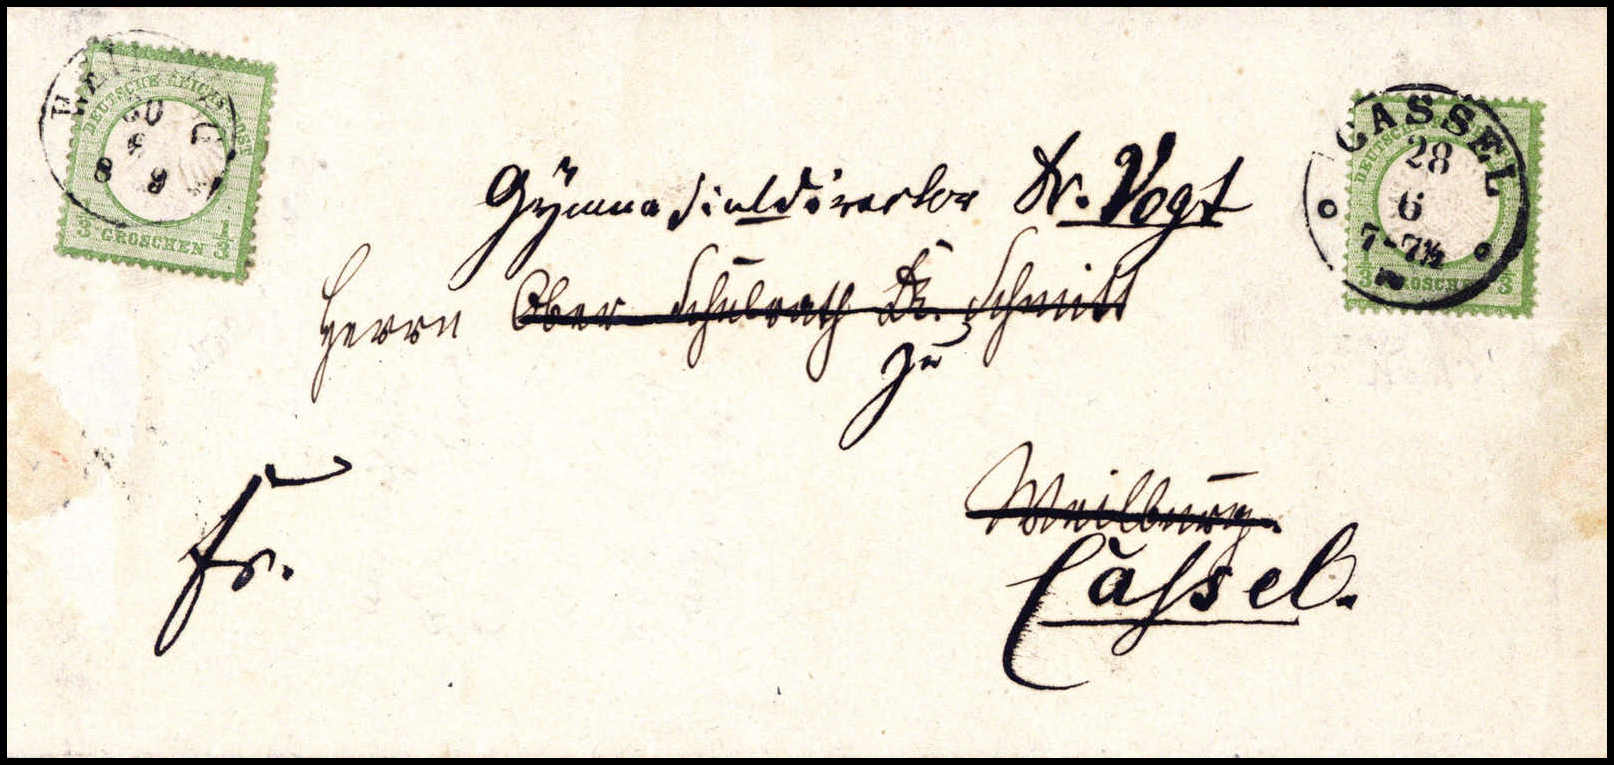 DEUTSCHE REICHS-POST
1/3 GROSCHEN 1/3
CASSEL
28
6
7-7½
N
DEUTSCHE
1/3 GROSCHEN 1/3
Gymnasialdirector Dr. Vogt
Herrn Ober Schulrath Dr. Schmitt
zu
Weilburg.
Cassel.
Fr.